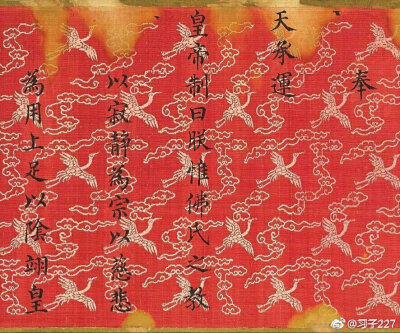 奉
天承運
皇帝制曰朕惟佛氏之教
以寂靜為宗以慈悲
為用上足以陰翊皇
@习子227